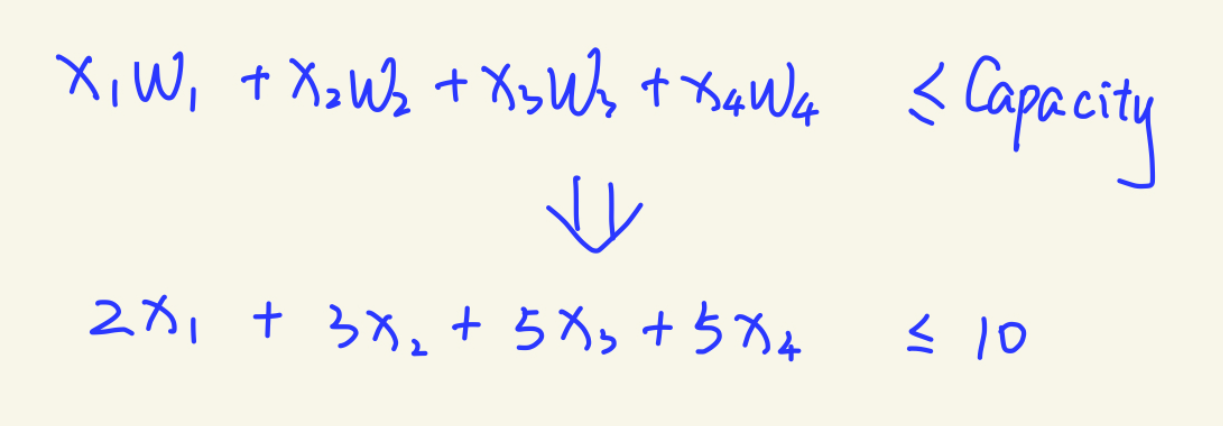 x₁w₁ + x₂w₂ + x₃w₃ + x₄w₄ ≤ Capacity
⇓
2x₁ + 3x₂ + 5x₃ + 5x₄ ≤ 10